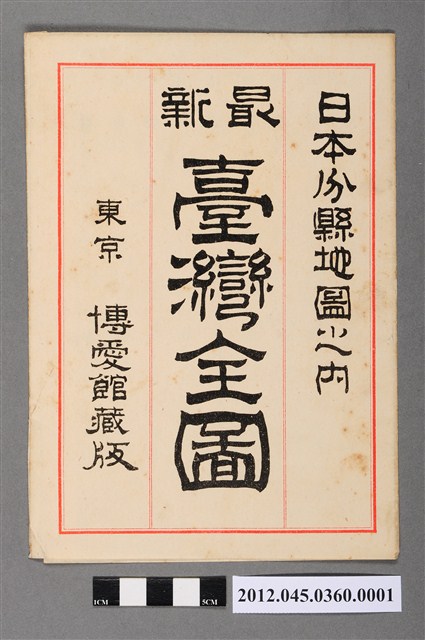 日本分縣地圖之内
最新
臺灣全圖
東京 博愛館藏版
1CM
5CM
2012.045.0360.0001